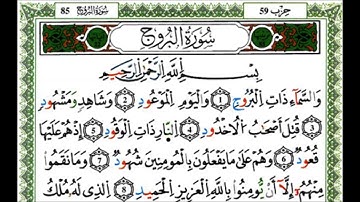 حزب 59 سُورَةُ البُرُوج 85
سُورَةُ الْبُرُوجِ
بِسْمِ اللَّهِ الرَّحْمَٰنِ الرَّحِيمِ
وَالسَّمَآءِ ذَاتِ الْبُرُوجِ 1 وَالْيَوْمِ الْمَوْعُودِ 2 وَشَاهِدٍ وَمَشْهُودٍ
3 قُتِلَ أَصْحَٰبُ الْأُخْدُودِ 4 النَّارِ ذَاتِ الْوَقُودِ 5 إِذْ هُمْ عَلَيْهَا
قُعُودٌ 6 وَهُمْ عَلَىٰ مَا يَفْعَلُونَ بِالْمُؤْمِنِينَ شُهُودٌ 7 وَمَا نَقَمُوا
مِنْهُمْ إِلَّآ أَنْ يُؤْمِنُوا بِاللَّهِ الْعَزِيزِ الْحَمِيدِ 8 الَّذِى لَهُ مُلْكُ